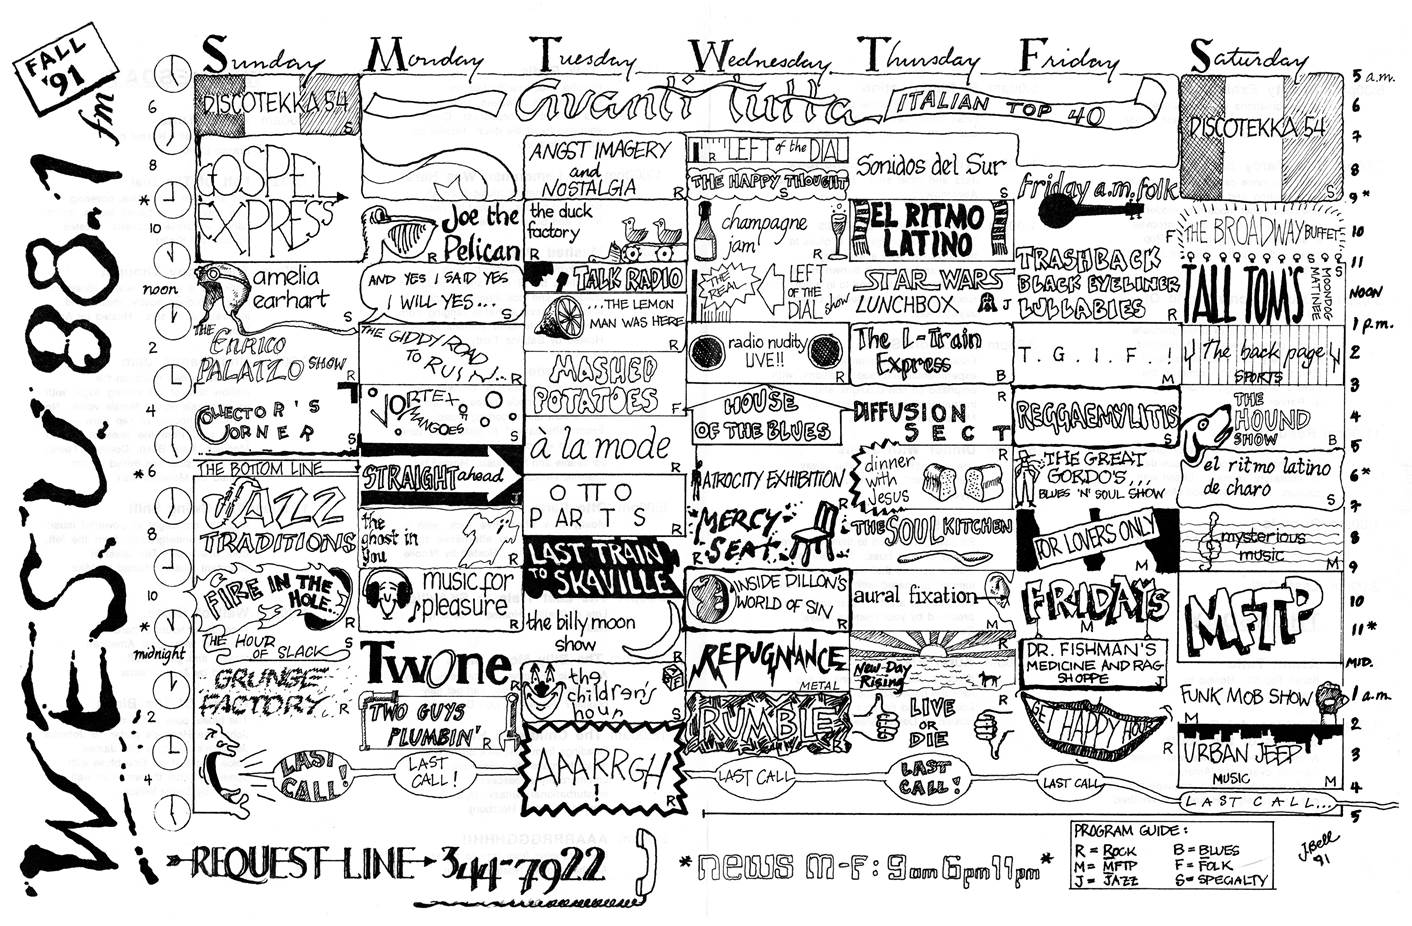 FALL
'91
WESU 88.1 fm
Sunday Monday Tuesday Wednesday Thursday Friday Saturday
6
8
*
10
noon
2
4
* 6
8
10
*
midnight
2
4
DISCOTEKKA 54
S
GOSPEL
EXPRESS
amelia
earhart
S
THE
ENRICO
PALATZO SHOW
R
COLLECTOR'S
CORNER
S
THE BOTTOM LINE
JAZZ
TRADITIONS
FIRE IN THE
HOLE
R
THE HOUR
OF SLACK
S
GRUNGE
FACTORY
R
LAST
CALL!
Avanti Tutta
ITALIAN TOP 40
Joe the
Pelican
R
AND YES I SAID YES
I WILL YES...
S
THE GIDDY ROAD
TO RUIN...
R
VORTEX OF
MANGOES
S
STRAIGHT ahead
J
the
ghost in
you
R
music for
pleasure
R
TWONE
R
TWO GUYS
PLUMBIN'
R
LAST
CALL!
ANGST IMAGERY
and
NOSTALGIA
R
the duck
factory
R
TALK RADIO
...THE LEMON
MAN WAS HERE
R
MASHED
POTATOES
F
à la mode
R
O TT O
PARTS
R
LAST TRAIN
TO SKAVILLE
the billy moon
show
R
the
children's
hour
S
AAARRGH
!
R
LEFT of the DIAL
R
THE HAPPY THOUGHT
S
champagne
jam
R
THE
REAL
LEFT
OF THE
DIAL show
radio nudity
LIVE!!
R
HOUSE
OF THE BLUES
ATROCITY EXHIBITION
R
MERCY
SEAT
R
INSIDE DILLON'S
WORLD OF SIN
R
REPUGNANCE
METAL
RUMBLE
LAST CALL
Sonidos del Sur
S
EL RITMO
LATINO
S
STAR WARS
LUNCHBOX
J
The L-Train
Express
B
DIFFUSION
SECT
R
dinner
with
Jesus
R
THE SOUL KITCHEN
aural fixation
M
R
New Day
Rising
LIVE
OR
DIE
R
LAST
CALL!
friday a.m. folk
F
TRASHBACK
BLACK EYELINER
LULLABIES
R
T. G. I. F. !
M
REGGAEMYLITIS
S
THE GREAT
GORDO'S...
BLUES 'N' SOUL SHOW
FOR LOVERS ONLY
M
FRIDAYS
M
DR. FISHMAN'S
MEDICINE AND RAG
SHOPPE
J
GET HAPPY HOUR
R
LAST CALL
DISCOTEKKA 54
S
THE BROADWAY BUFFET
S
TALL TOM'S
MOONDOG
MATINEE
The back page
SPORTS
THE
HOUND
SHOW
B
el ritmo latino
de charo
S
mysterious
music
M
MFTP
FUNK MOB SHOW
M
URBAN JEEP
MUSIC
M
LAST CALL...
5 a.m.
6
7
8
9*
10
11
NOON
1 p.m.
2
3
4
5
6*
7
8
9
10
11*
MID.
1 a.m.
2
3
4
5
REQUEST LINE 344-7922
*news M-F: 9am 6pm 11pm*
PROGRAM GUIDE:
R = ROCK B = BLUES
M = MFTP F = FOLK
J = JAZZ S = SPECIALTY
J. Bell
'91